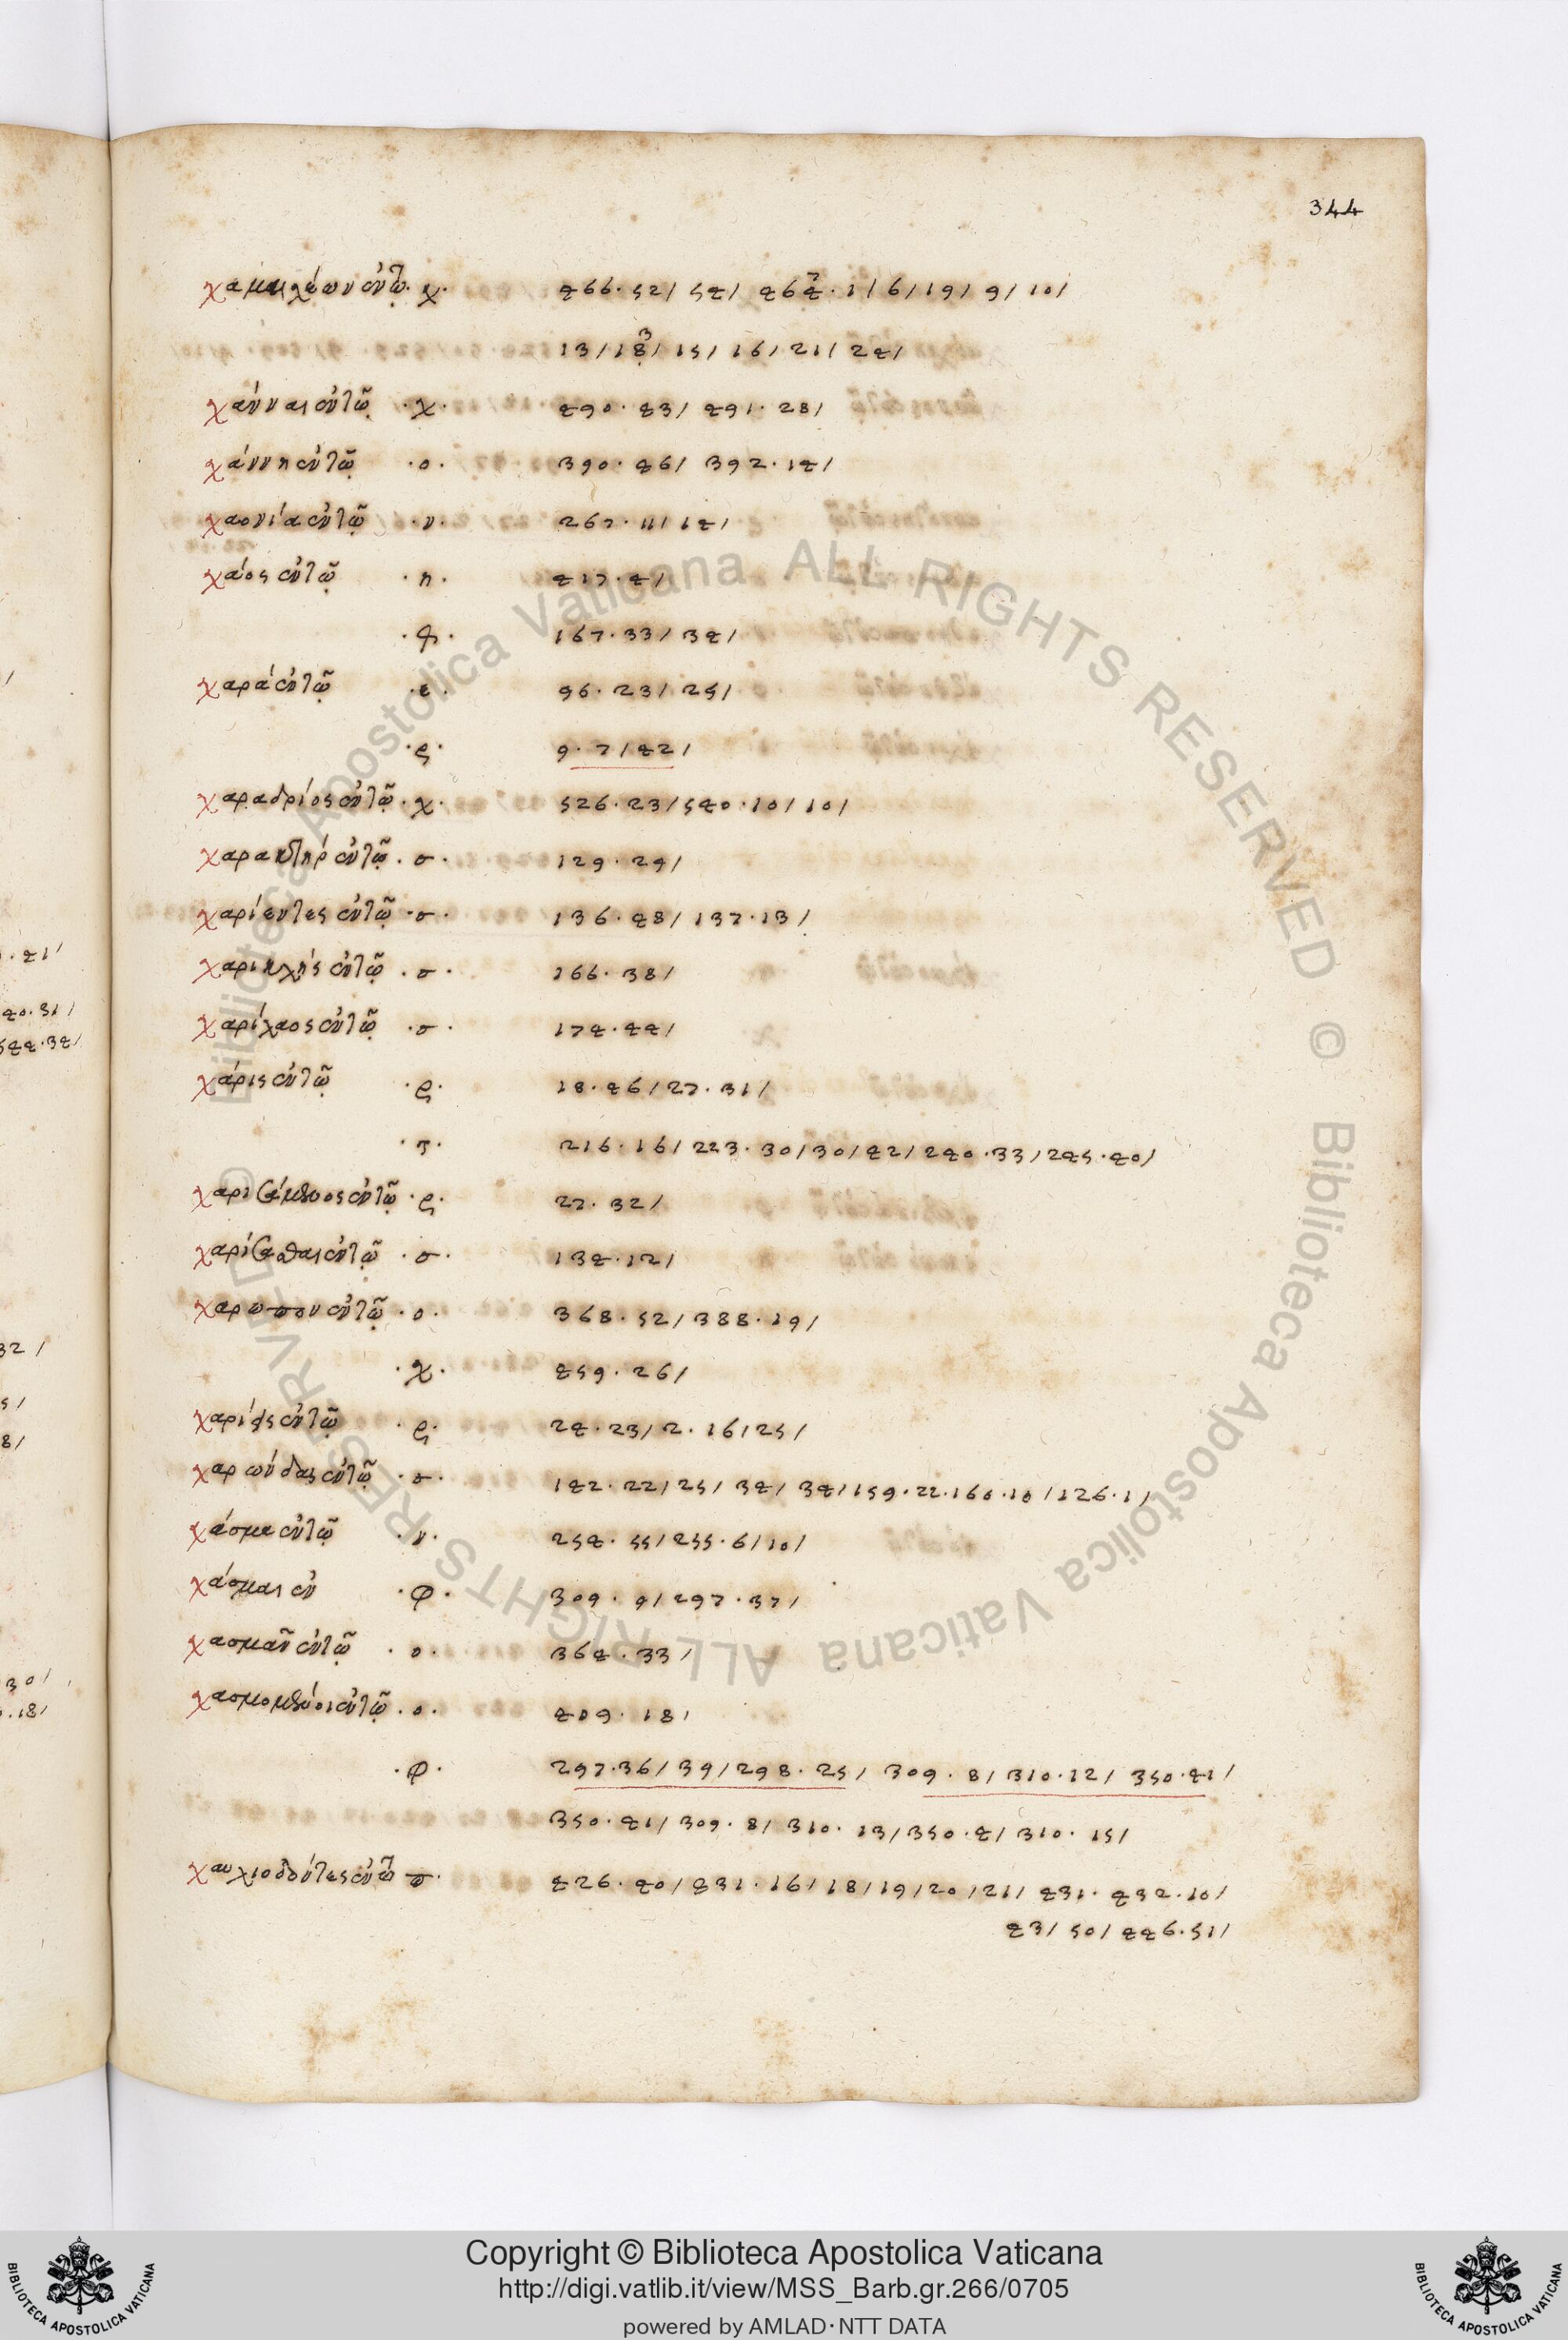 344
χαμαιλέων ἐν τῷ · χ · 466 · 52 / 54 / 464 · 1 / 6 / 19 / 9 / 10 /
13 / 18 / 15 / 16 / 21 / 24 /
χάνναι ἐν τῷ · χ · 490 · 43 / 491 · 28 /
χάννη ἐν τῷ · ο · 390 · 46 / 392 · 14 /
χαονία ἐν τῷ · ν · 267 · 11 / 14 /
χάος ἐν τῷ · π · 417 · 4 /
167 · 33 / 34 /
χαρά ἐν τῷ · ε · 96 · 23 / 25 /
· ς · 9 · 7 / 42 /
χαραδριός ἐν τῷ · χ · 526 · 23 / 540 · 10 / 10 /
χαρακτήρ ἐν τῷ · σ · 129 · 29 /
χαρίεντες ἐν τῷ · σ · 136 · 48 / 137 · 13 /
χαρικλῆς ἐν τῷ · σ · 166 · 38 /
χαρίλαος ἐν τῷ · σ · 174 · 44 /
χάρις ἐν τῷ · ς · 18 · 46 / 27 · 31 /
· τ · 216 · 16 / 223 · 30 / 30 / 42 / 240 · 33 / 245 · 40 /
ἐν τῷ · ς · 27 · 32 /
χαρίζεσθαι ἐν τῷ · σ · 134 · 12 /
χαρωπον ἐν τῷ · ο · 368 · 52 / 388 · 19 /
· χ · 459 · 26 /
ἐν τῷ · ς · 24 · 23 / 2 · 16 / 25 /
χαρώνδας ἐν τῷ · σ · 142 · 22 / 25 / 34 / 34 / 159 · 22 · 160 · 10 / 126 · 1 /
χάσμα ἐν τῷ · ν · 254 · 55 / 255 · 6 / 10 /
χάσμαι ἐν · φ · 309 · 9 / 297 · 37 /
χασμᾶν ἐν τῷ · ο · 364 · 33 /
χασμομένοι ἐν τῷ · ο · 409 · 18 /
· φ · 297 · 36 / 39 / 298 · 25 / 309 · 8 / 310 · 12 / 350 · 41 /
350 · 41 / 309 · 8 / 310 · 13 / 350 · 4 / 310 · 15 /
χαυλιόδοντες ἐν τῷ π · 426 · 40 / 431 · 16 / 18 / 19 / 20 / 21 / 431 · 432 · 10 /
43 / 50 / 446 · 51 /
Copyright © Biblioteca Apostolica Vaticana
http://digi.vatlib.it/view/MSS_Barb.gr.266/0705
powered by AMLAD·NTT DATA
© Biblioteca Apostolica Vaticana ALL RIGHTS RESERVED © Biblioteca Apostolica Vaticana ALL RIGHTS RESERVED
BIBLIOTECA APOSTOLICA VATICANA
BIBLIOTECA APOSTOLICA VATICANA